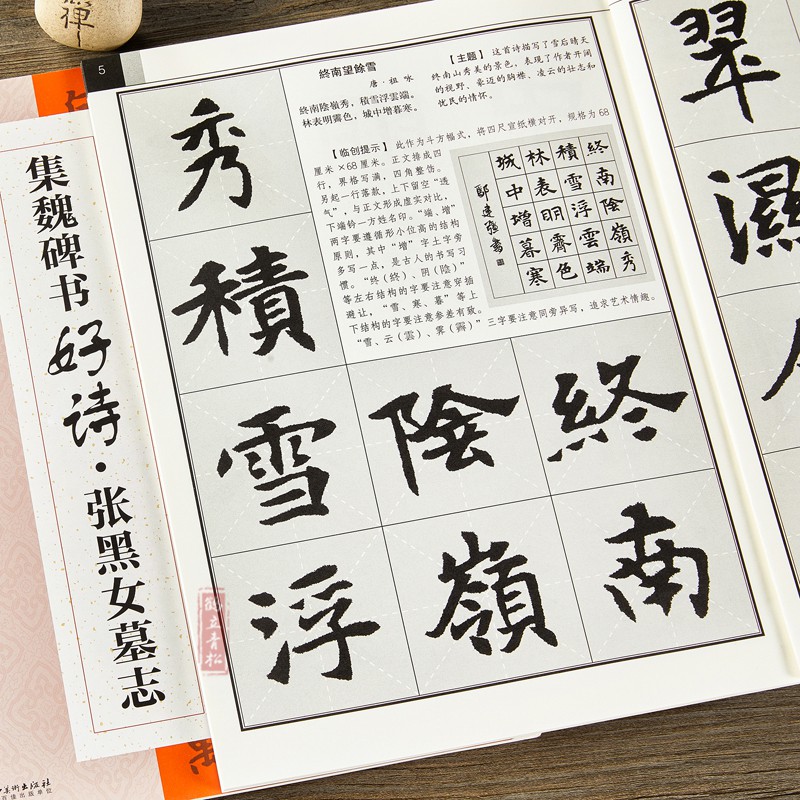 禅
5
終南望餘雪
唐·祖咏
終南陰嶺秀，積雪浮雲端。
林表明霽色，城中增暮寒。
【主题】这首诗描写了雪后晴天
终南山秀美的景色，表现了作者开阔
的视野、豪迈的胸襟、凌云的壮志和
忧民的情怀。
【临创提示】此作为斗方幅式，将四尺宣纸横对开，规格为68
厘米×68厘米。正文排成四
行，界格写满，四角整伤。
另起一行落款，上下留空“透
气”，与正文形成虚实对比，
下端钤一方姓名印。“端、增”
两字要遵循形小位高的结构
原则，其中“增”字土字旁
多写一点，是古人的书写习
惯。“终（終）、阴（陰）”
等左右结构的字要注意穿插
避让，“雪、寒、暮”等上
下结构的字要注意参差有致。
“雪、云（雲）、霁（霽）”三字要注意同旁异写，追求艺术情趣。
終南陰嶺秀
積雪浮雲端
林表明霽色
城中增暮寒
終南
陰嶺
秀積雪浮
翠
濕
集魏碑书好诗·张黑女墓志
鹤立青松
美術出版社
百佳出版单位